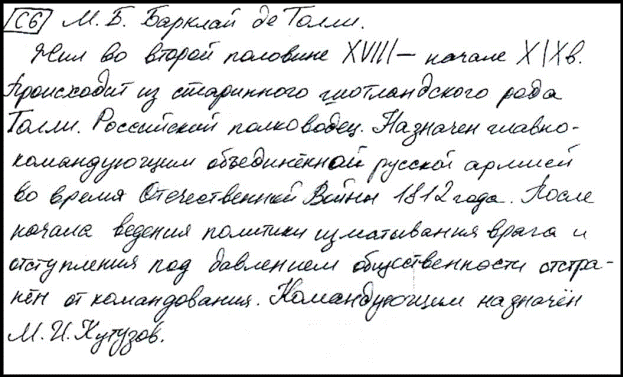 С6 М. Б. Барклай де Толли.
Жил во второй половине XVIII – начале XIX в.
Происходит из старинного шотландского рода
Толли. Российский полководец. Назначен главно-
командующим объединённой русской армией
во время Отечественной Войны 1812 года. После
начала ведения политики изматывания врага и
отступления под давлением общественности отстра-
нён от командования. Командующим назначен
М. И. Кутузов.